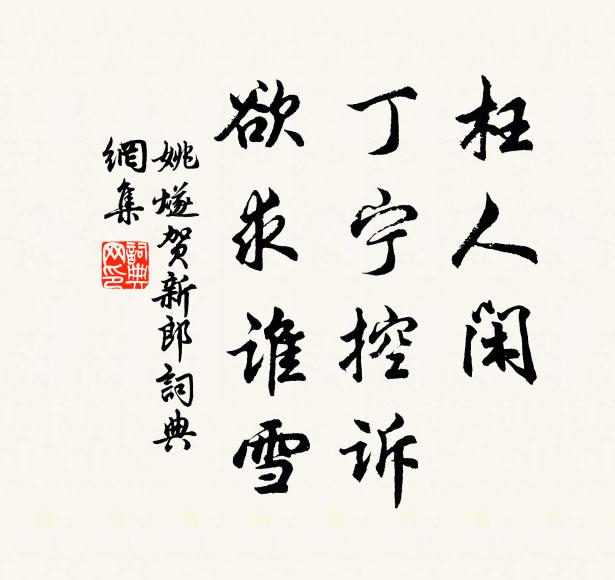 枉人闲
丁宁控诉
欲求谁雪
姚燧贺新郎詞典
網集
詞典
网印